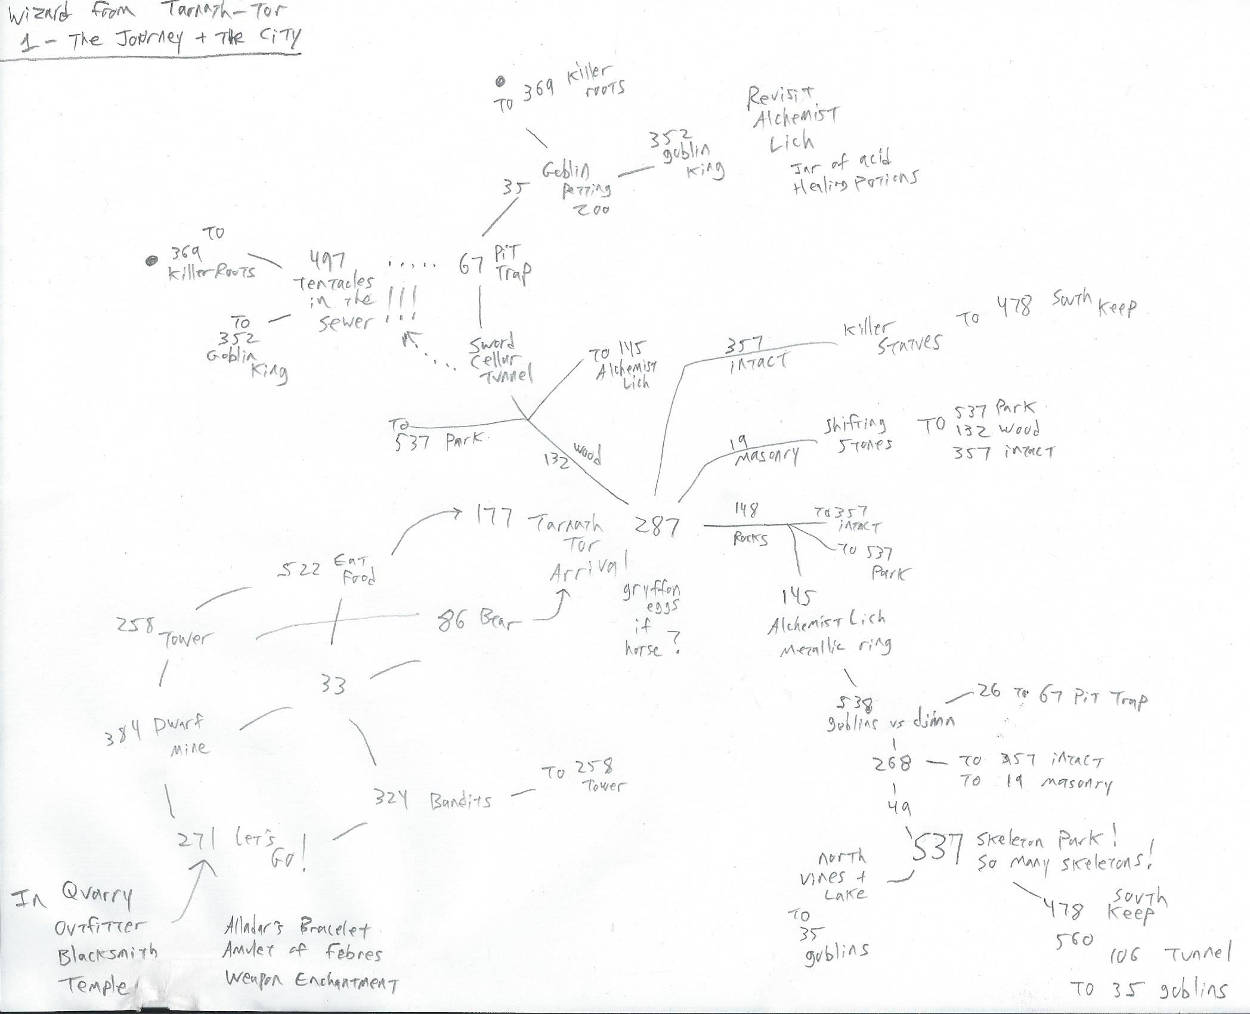 Wizard from Tarnath-Tor
1 - The Journey + The City
TO 369 Killer
roots
Revisit
Alchemist
Lich
Jar of acid
Healing Potions
352
goblin
King
35 Goblin
Petting
zoo
TO
369
Killer Roots
497
Tentacles
in the
sewer !!!
67 Pit
Trap
TO
352
Goblin
King
Sword
Cellar
Tunnel
TO 145
Alchemist
Lich
357
intact
Killer
Statues
TO 478 South
Keep
TO
537 Park
132 wood
19
Masonry
Shifting
Stones
TO 537 Park
132 wood
357 intact
177 Tarnath
Tor
Arrival
287
148
Rocks
TO 357
intact
TO 537
Park
522 Eat
Food
gryffon
eggs
if
horse?
145
Alchemist Lich
Metallic ring
258
Tower
86 Bear
33
538
goblins vs djinn
26 TO 67 Pit Trap
384 Dwarf
Mine
268 - TO 357 intact
TO 19 Masonry
49
324 Bandits
TO 258
Tower
271 Let's
Go!
537 Skeleton Park!
So many skeletons!
north
vines +
Lake
TO
35
goblins
478 South
Keep
560
106 Tunnel
TO 35 goblins
In Quarry
Outfitter
Blacksmith
Temple
Alladar's Bracelet
Amulet of Febres
Weapon Enchantment